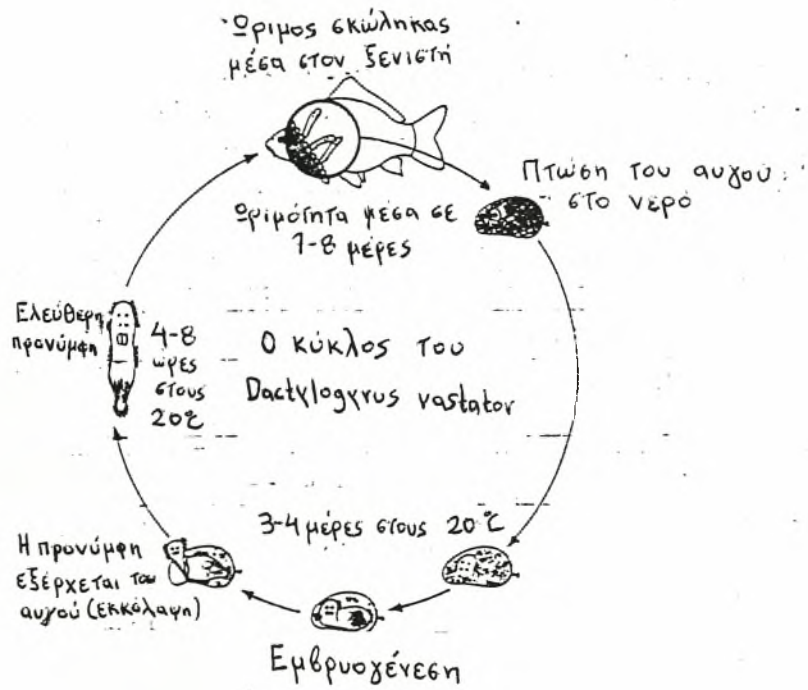 Ώριμος σκώληκας
μέσα στον ξενιστή
Πτώση του αυγού
στο νερό
Ωριμότητα μέσα σε
7-8 μέρες
Ελεύθερη
προνύμφη
4-8
ώρες
στους
20℃
Ο κύκλος του
Dactylogyrus vastator
3-4 μέρες στους 20℃
Η προνύμφη
εξέρχεται του
αυγού (εκκόλαψη)
Εμβρυογένεση